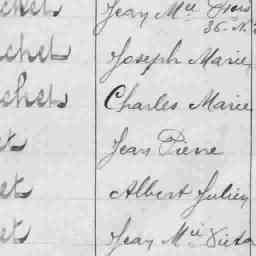 chet Jean Mie
36. N.
chet Joseph Marie
chet Charles Marie
et Jean Pierre
et Albert Julien
et Jean Mie Victor